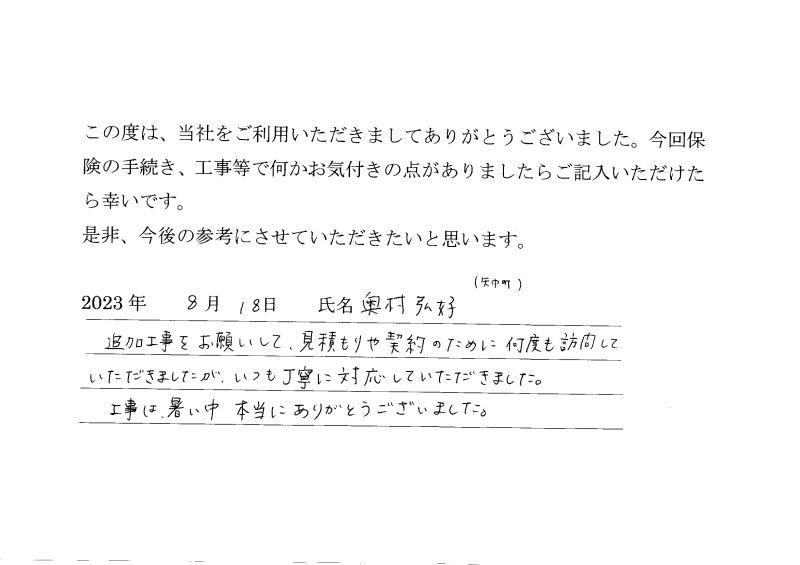 この度は、当社をご利用いただきましてありがとうございました。今回保
険の手続き、工事等で何かお気付きの点がありましたらご記入いただけた
ら幸いです。
是非、今後の参考にさせていただきたいと思います。
(矢中町)
2023 年 8 月 18日 氏名 奥村 弘好
追加工事をお願いして、見積もりや契約のために何度も訪問して
いただきましたが、いつも丁寧に対応していただきました。
工事は、暑い中 本当にありがとうございました。